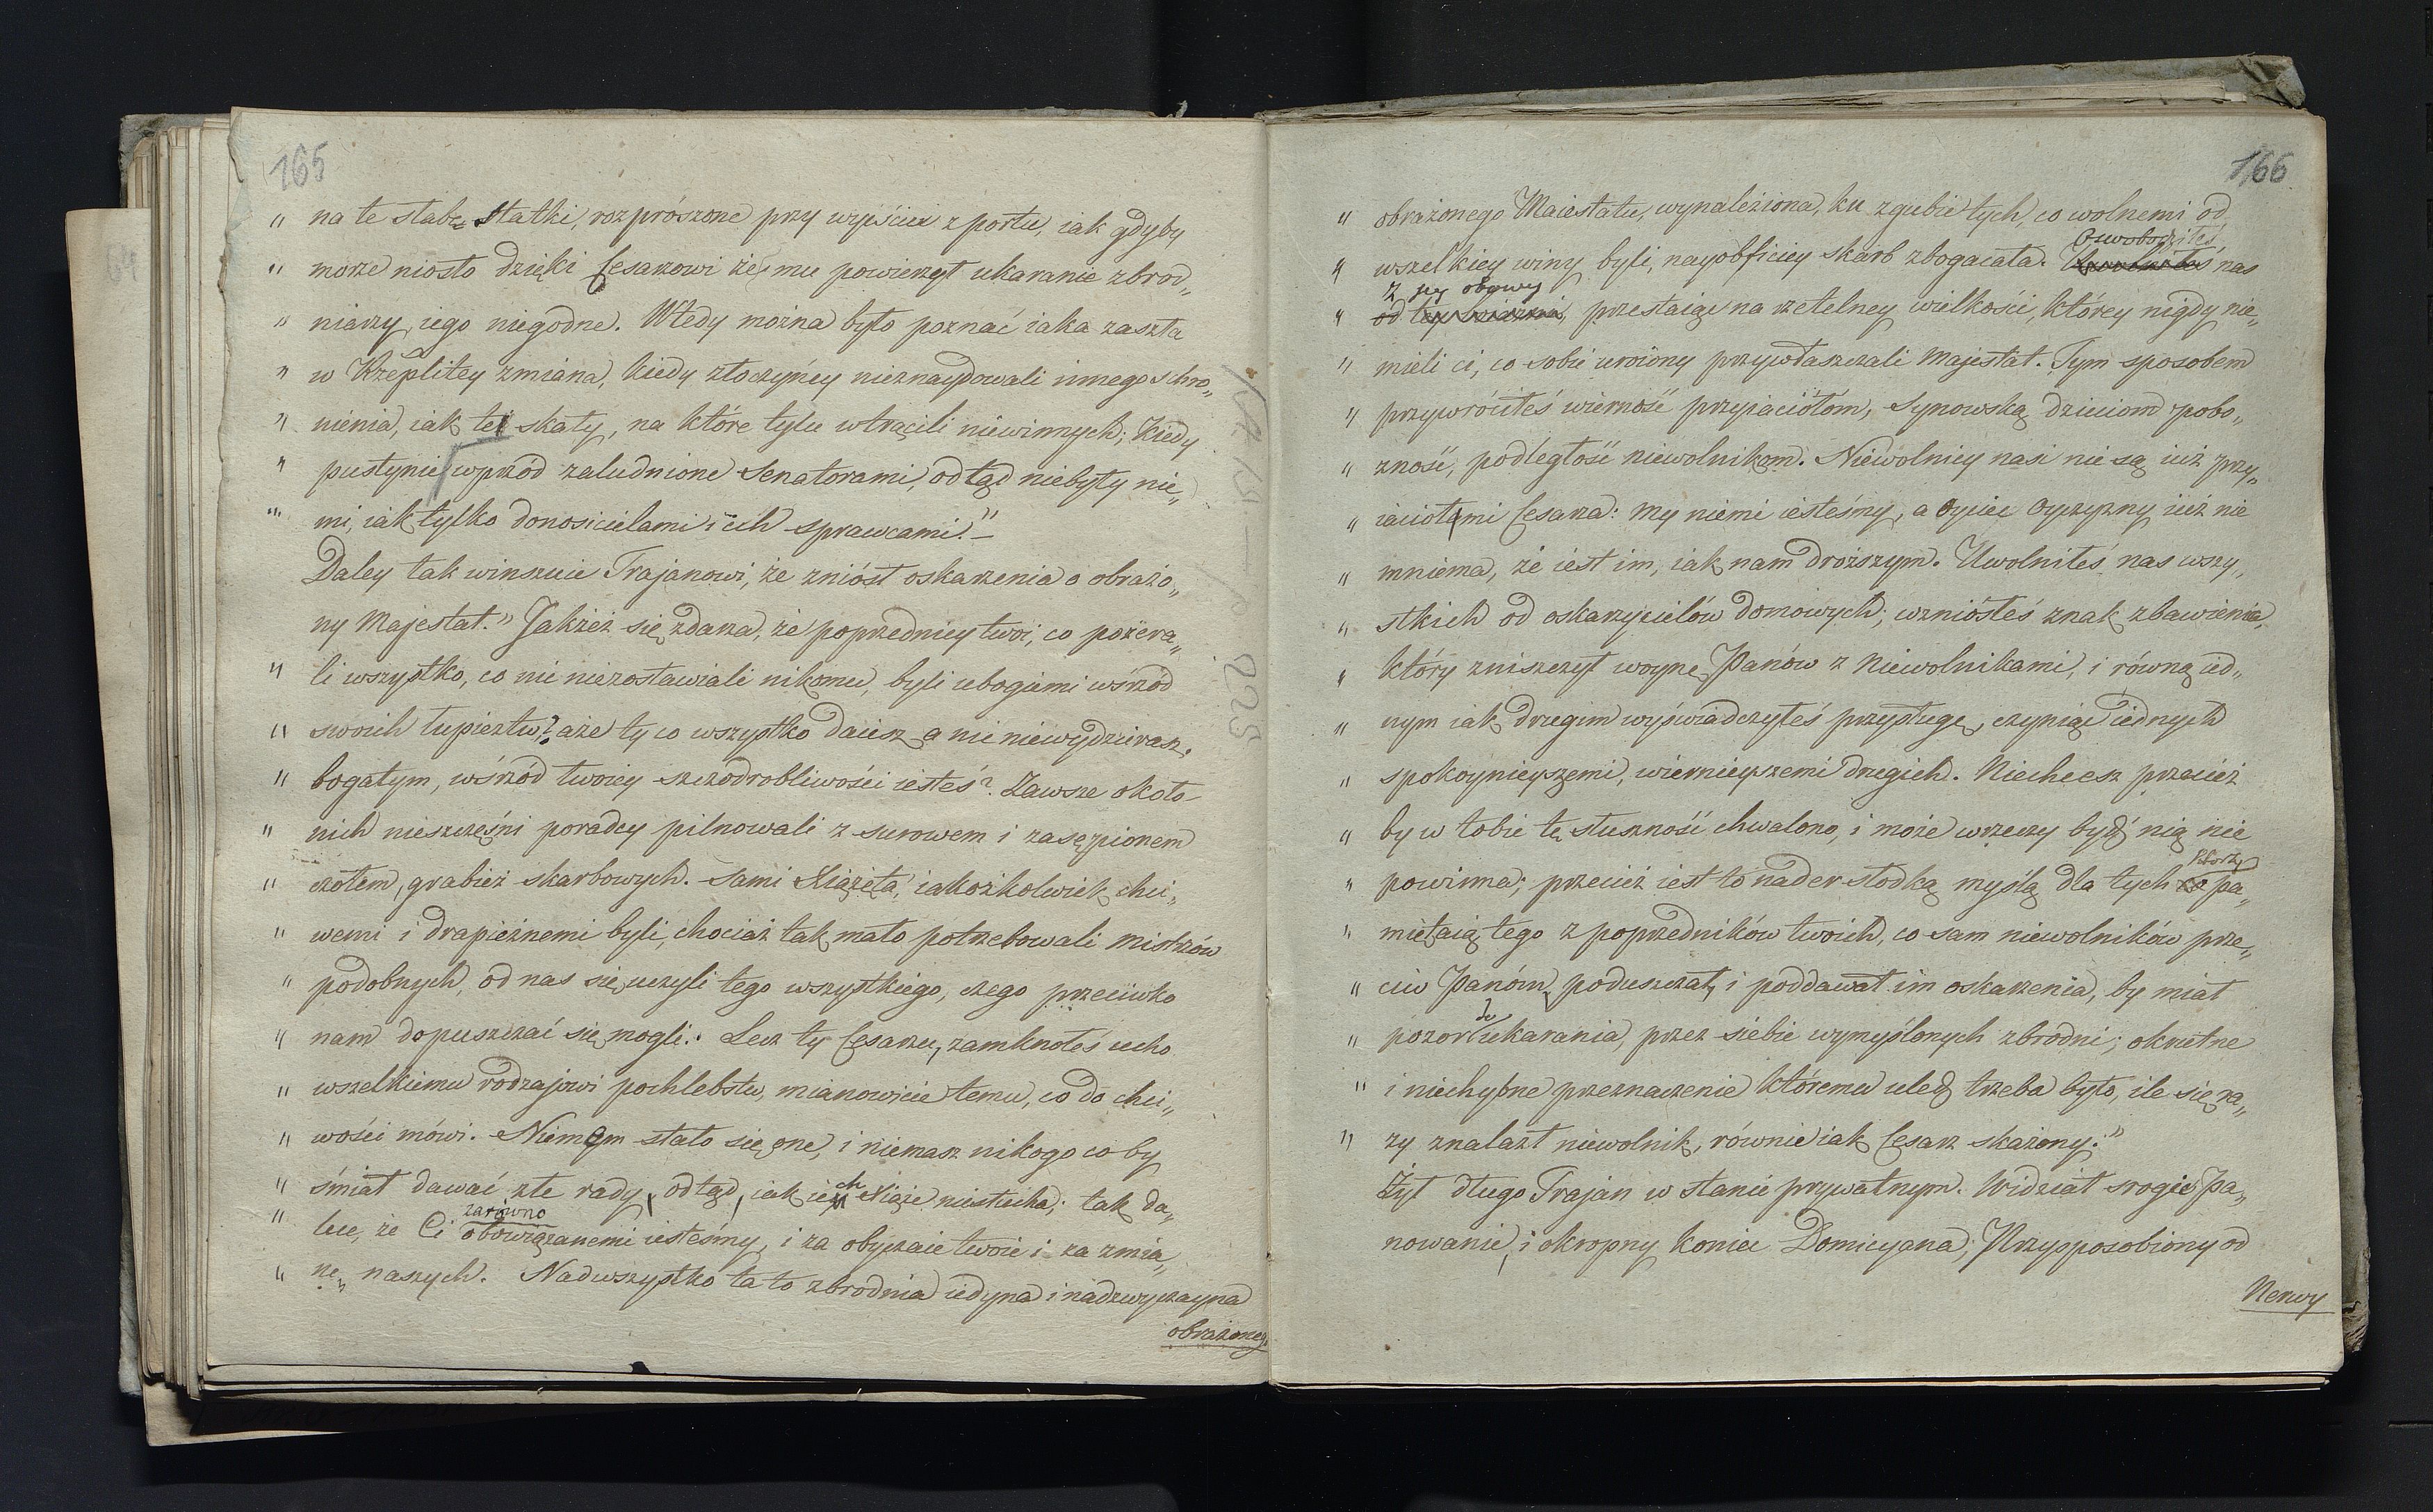 165
" na te słabe statki, rozprószone przy wyiściu z portu, iak gdyby
" morze niosło dzięki Cesarzowi że mu powierzył ukaranie zbrod„
" niarzy, iego niegodne. Wtedy można było poznać iaka zaszła
" w Rzeplitey zmiana, kiedy złoczyńcy nieznaydowali innego schro„
" nienia, iak te skały, na które tylu wtrącili niewinnych; kiedy
" pustynie wprzód zaludnione Senatorami, odtąd niebyły nie„
" mi, iak tylko donosicielami i ich sprawcami." –
Daley tak winszuie Trajanowi, że zniósł oskarżenia o obrażo„
ny Majestat. " Jakżeż się zdarza, że poprzednicy twoi, co pożera„
" li wszystko, co nic niezostawiali nikomu, byli ubogiemi wśrzód
" swoich łupieztw? aże ty co wszystko daiesz a nic niewydzierasz,
" bogatym, wśrzód twoiey szczodrobliwości iesteś? Zawsze około
" nich nieszczęśni poradcy pilnowali z surowem i zasępionem
" czołem, grabież skarbowych. Sami Xiążęta, iakożkolwiek chci„
" wemi i drapieżnemi byli, chociaż tak mało potrzebowali mistrzów
" podobnych, od nas się uczyli tego wszystkiego, czego przeciwko
" nam dopuszczać się mogli. Lecz ty Cesarzu, zamknąłeś ucho
" wszelkiemu rodzajowi pochlebstw, mianowicie temu, co do chci„
" wości mówi. Niemem stało się one, i niemasz nikogo co by
" śmiał dawać złe rady, odtąd, iak ich Xiąże niesłucha; tak da„
zarówno
" lece, że Ci obowiązanemi iesteśmy, i za obyczaie twoie i za zmia„
" nę naszych. Nadwszystko ta to zbrodnia iedyna i nadzwyczayna
obrażoneg.
166
" obrażonego Maiestatu, wynaleziona, ku zgubie tych, co wolnemi od
Oswobodziłeś,
" wszelkiey winy byli, nayobficiey skarb zbogacała. nas
z jey obawy
" od tey przestaiąc na rzetelney wielkości, którey nigdy nie„
" mieli ci, co sobie uroiony przywłaszczali Majestat. Tym sposobem
" przywróciłeś wierność przyiaciołom, Synowską dzieciom pobo„
" żność, podległość niewolnikom. Niewolnicy nasi nie są iuż przy„
" iaciołmi Cesarza: my niemi iesteśmy, a oyciec Oyczyzny iuż nie
" mniema, że iest im, iak nam droższym. Uwolniłeś nas wszy„
" stkich od oskarzycielów domowych; wzniosłeś znak zbawienia,
" który zniszczył woynę Panów z Niewolnikami, i równą ied„
" nym iak drugim wyświadczyłeś przysługę, czyniąc iednych
" spokoynieyszemi, wiernieyszemi drugich. Niechcesz przecież
" by w tobie tę słuszność chwalono, i może w rzeczy bydź nią nie
którzy
" powinna; przecież iest to nader słodką myślą dla tych co pa„
" miętaią tego z poprzedników twoich, co sam niewolników prze„
" ciw Panóm poduszczał, i poddawał im oskarżenia, by miał
do
" pozor ukarania, przez siebie wymyślonych zbrodni; okrutne
" i niechybne przeznaczenie któremu uledz trzeba było, ile się ra„
" zy znalazł niewolnik, równie iak Cesarz skażony."
Żył długo Trajan w stanie prywatnym. Widział srogie Pa„
nowanie, i okropny koniec Domicyana; Przysposobiony od
Nerwy